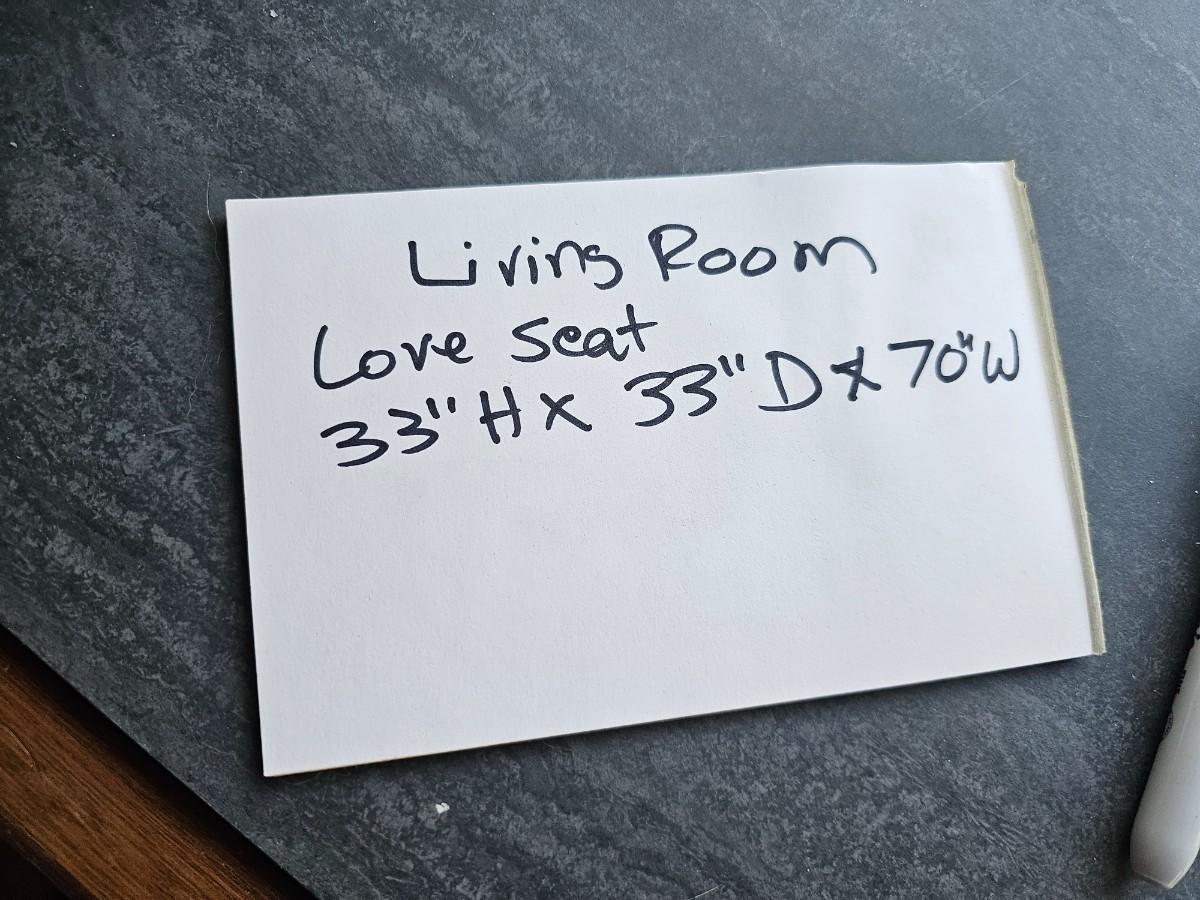 Living Room
Love seat
33" H x 33" D x 70" W